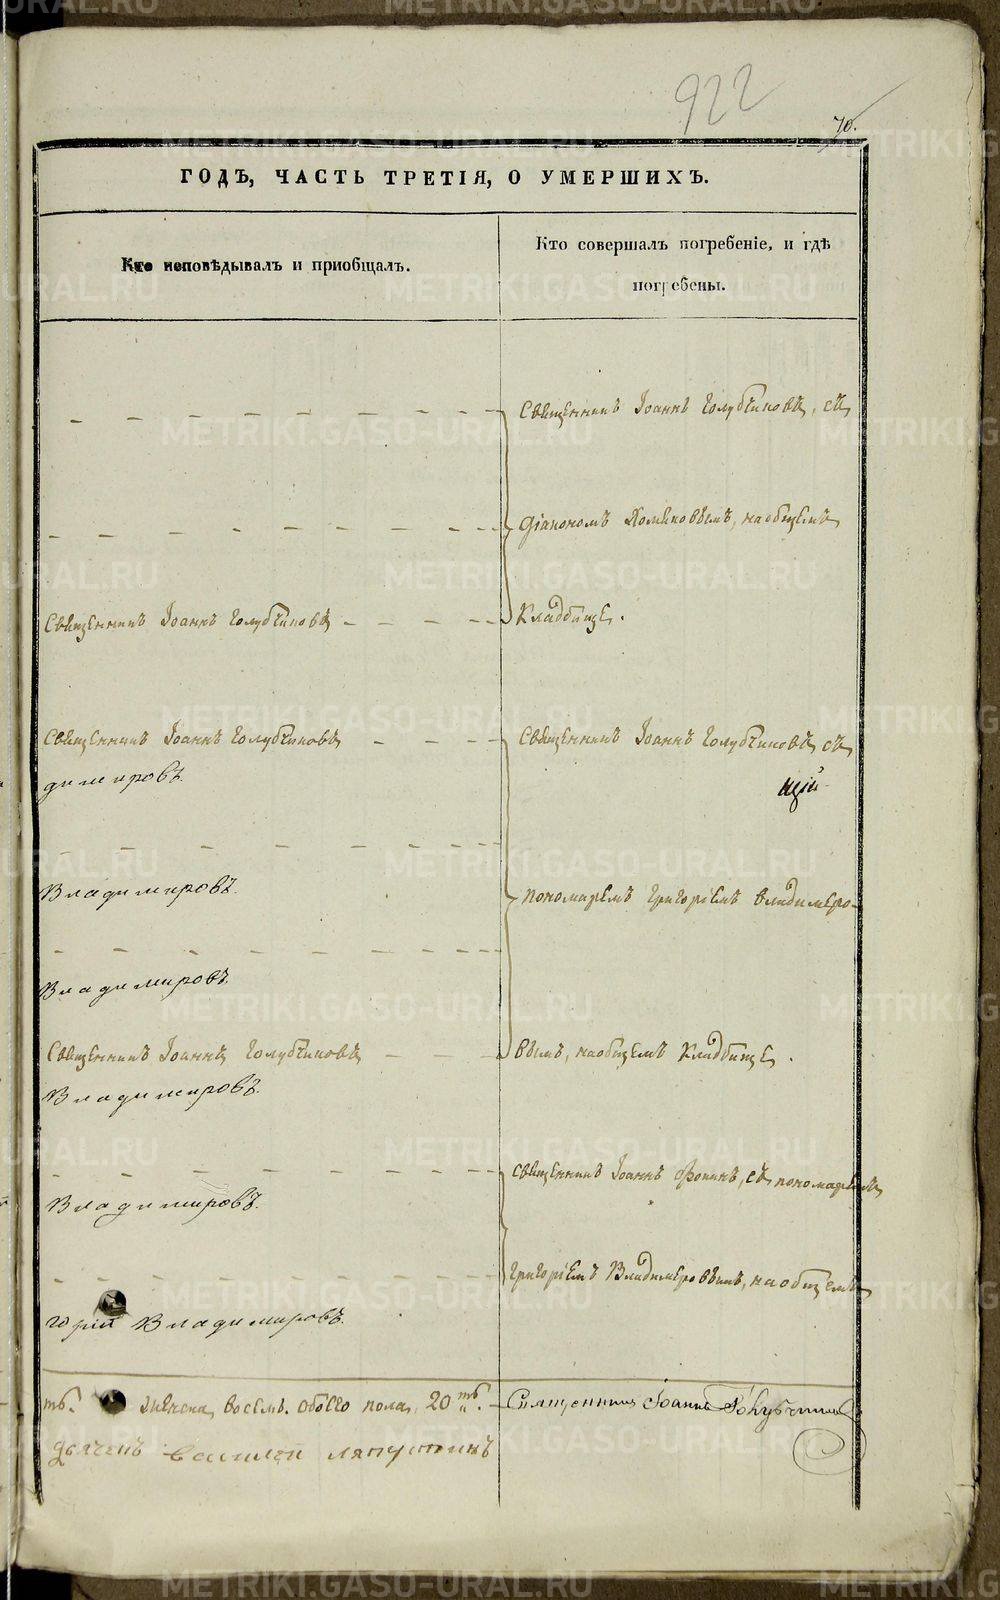 922
70.
ГОДЪ, ЧАСТЬ ТРЕТІЯ, О УМЕРШИХЪ.
Кто исповѣдывалъ и пріобщалъ.
Кто совершалъ погребеніе, и гдѣ
погребены.
Священникъ Іоаннъ Голубчиковъ, съ
діакономъ Хомяковымъ, на общемъ
Священникъ Іоаннъ Голубчиковъ
кладбище.
Священникъ Іоаннъ Голубчиковъ
димировъ.
Священникъ Іоаннъ Голубчиковъ съ
щій
Владимировъ.
пономаремъ Григоріемъ Владимиро-
Владимировъ.
Священникъ Іоаннъ Голубчиковъ
вымъ, на общемъ кладбище.
Владимировъ.
Священникъ Іоаннъ Фокинъ, съ пономаремъ
Владимировъ.
Григоріемъ Владимировымъ, на общемъ
горій Владимировъ.
восемь. обоего пола, 20ть.
Священникъ Іоаннъ Голубчиковъ
дьячекъ Василей Ляпустинъ
METRIKI.GASO-URAL.RU